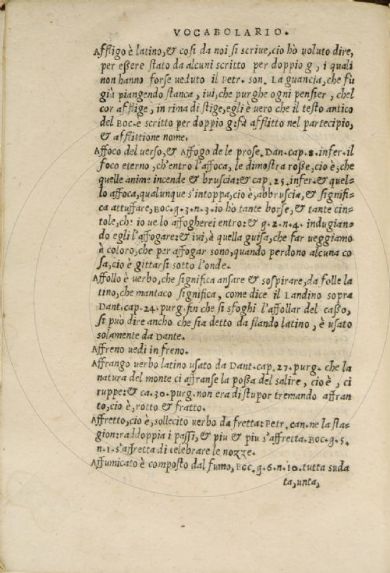 VOCABOLARIO.
Affligo è latino, & cosi da noi si scriue, cio hò uoluto dire,
per eßere stato da alcuni scritto per doppio g, i quali
non hanno forse ueduto il Petr. son. La guancia, che fu
già piangendo stanca, iui, che purghe ogni pensier, chel
cor afflige, in rima di stige, egli è uero che il testo antico
del Boc. è scritto per doppio g: fà afflitto nel partecipio,
& afflittione nome.
Affoco del uerso, & Affogo de le prose. Dan. cap. 8. infer. il
foco eterno, ch'entro l'affoca, le dimostra roße, cio è; che
quelle anime incende & bruscia: & cap. 25. infer. & quel-
lo affoca, qualunque s'intoppa, cio è, abbruscia, & signifi
ca attuffare, Boc. g. 3. n. 3. io ho tante borse, & tante cin-
tole, ch: io ue lo affogherei entro: & g. 2. n. 4. indugian
do egli l'affogare: & iui, à quella guisa, che far ueggiamo
à coloro, che per affogar sono, quando perdono alcuna co
sa, cio è gittarsi sotto l'onde.
Affollo è uerbo, che significa ansare & sospirare, da folle la
tino, che mantaco significa, come dice il Landino sopra
Dant. cap. 24. purg. fin che si sfoghi l'affollar del caßo,
si può dire ancho che sia detto da flando latino, è usato
solamente da Dante.
Affreno uedi in freno.
Affrango uerbo latino usato da Dant. cap. 27. purg. che la
natura del monte ci affranse la poßa del salire, cio è, ci
ruppe: & ca. 30. purg. non era di stupor tremando affran
to, cio è, rotto & fratto.
Affretto, cio è, sollecito uerbo da fretta: Petr. can. ne la sta-
gion: raddoppia i passi, & piu & piu s'affretta. Boc. g. 5.
n. 1. s'affretta di celebrare le nozze.
Affumicato è composto dal fumo, Boc. g. 6. n. 10. tutta suda
ta, unta,